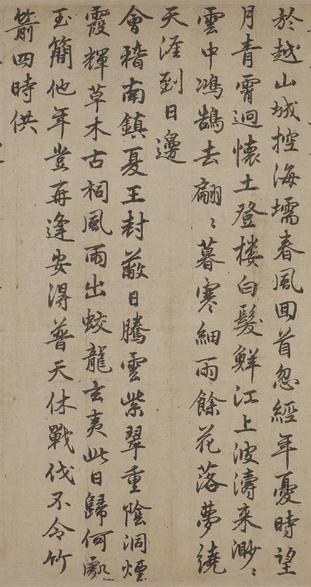 於越山城控海壖春風回首忽經年憂時望
月青霄迥懷土登樓白髮鮮江上波濤來渺〻
雲中鴻鵠去翩〻暮寒細雨餘花落夢繞
天涯到日邊
會稽南鎮夏王封蔽日騰雲紫翠重陰洞煙
霞輝草木古祠風雨出蛟龍玄夷此日歸何處
玉簡他年豈再逢安得普天休戰伐不令竹
箭四時供